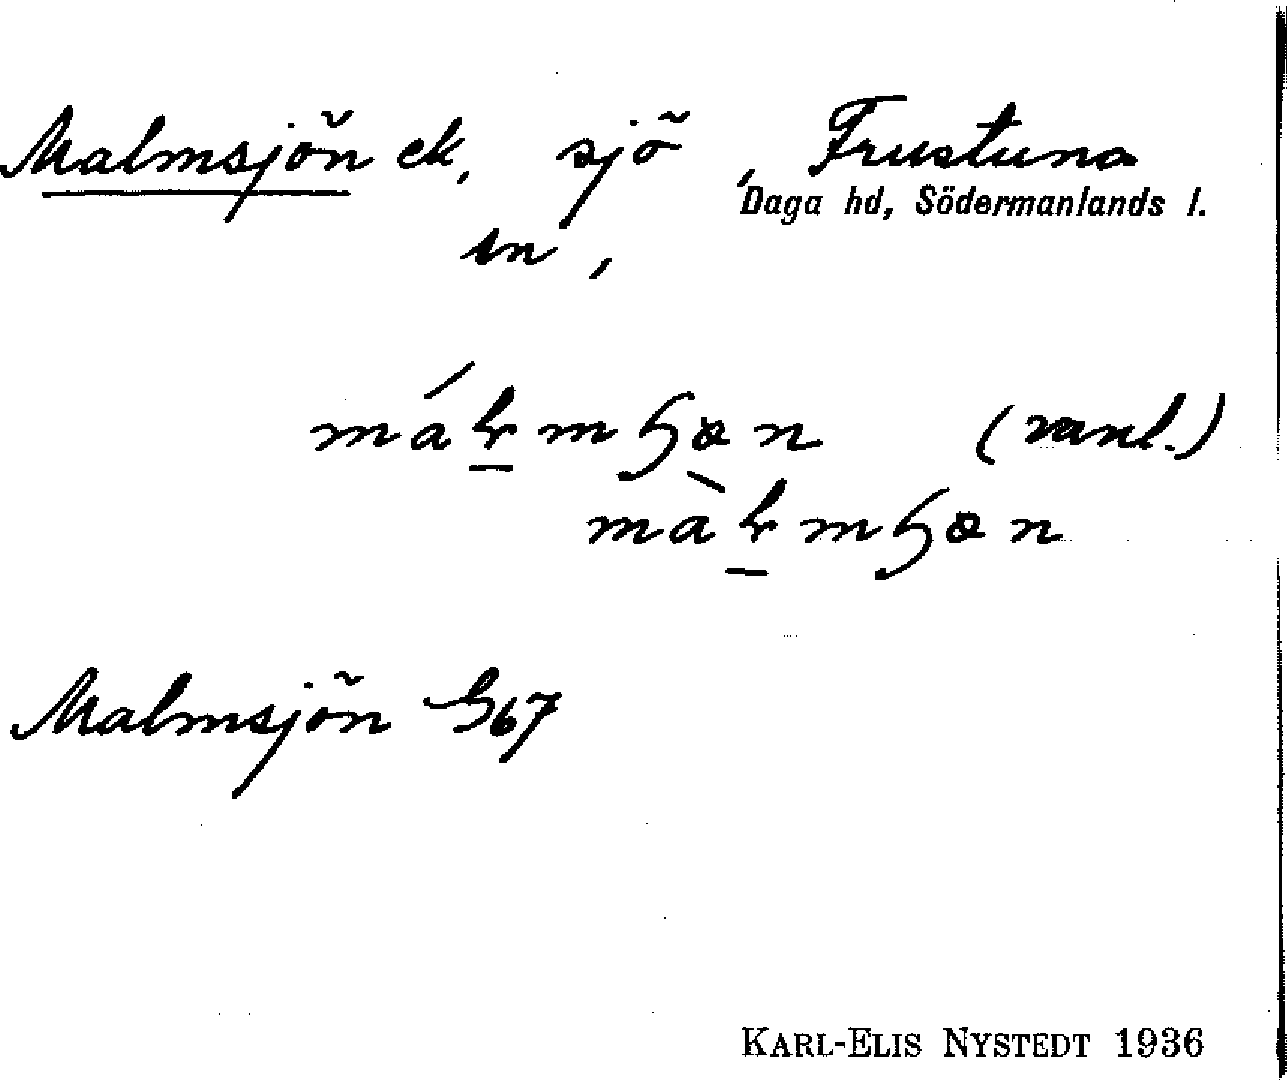 Malmsjön ek, sjö, Frustuna
Daga hd, Södermanlands l.
en,
(vanl.)
Malmsjön G67
KARL-ELIS NYSTEDT 1936